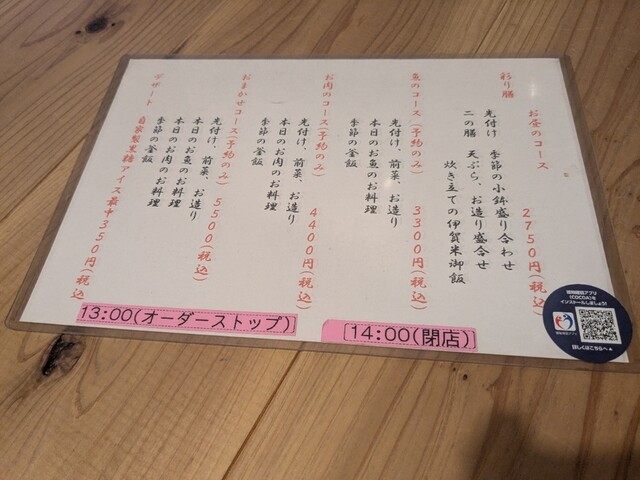 お昼のコース 2750円(税込)
彩り膳
先付け 季節の小鉢盛り合わせ
二の膳 天ぷら、お造り盛合せ
炊き立ての伊賀米御飯
魚のコース(予約のみ) 3300円(税込)
先付け、前菜、お造り
本日のお魚のお料理
季節の釜飯
お肉のコース(予約のみ) 4400円(税込)
先付け、前菜、お造り
本日のお肉のお料理
季節の釜飯
おまかせコース(予約のみ) 5500(税込)
先付け、前菜、お造り
本日のお魚のお料理
本日のお肉のお料理
季節の釜飯
デザート 自家製黒糖アイス最中350円(税込
13:00(オーダーストップ)
14:00(閉店)
接触確認アプリ
(COCOA)を
インストールしましょう!
詳しくはこちらへ